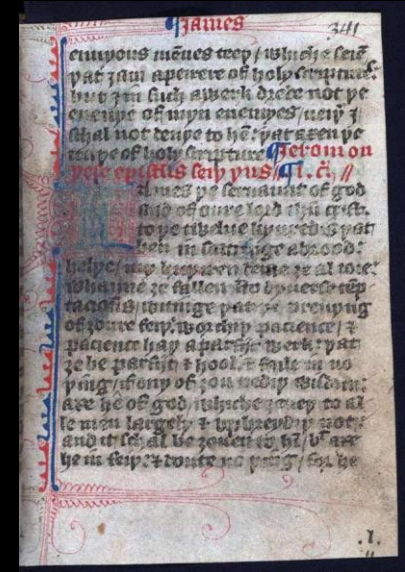 James
341
enuyous mēnes teeþ / whiche seiē
þat I am apeirere of holy scripture:
but I in such a werk drede not þe
enuye of myn enemyes / neiþ I
schal not denye to hē: þat axen þe
treuþe of holy scripture Jerom on
þese epistlis seiþ þus // i. c̄. //
James þe seruaunt of god
and of oure lord ihū crist.
to þe twelue kynredis þat
ben in scateringe abrood:
helþe / my briþeren deme ȝe al ioie:
whanne ȝe fallen ito dyuerse tēp
taciouns / witinge þat þe preuyng
of ȝoure feiþ: worchiþ pacience / ⁊
pacience haþ a parfijt werk: þat
ȝe be parfijt ⁊ hool. ⁊ faile in no
þing / if ony of ȝou nediþ wisdom:
axe he of god / whiche ȝeueþ to al
le men largely ⁊ vpbreydiþ not:
and it schal be ȝouen to hī / but axe
he in feiþ: ⁊ doute no þing / for he
.I.